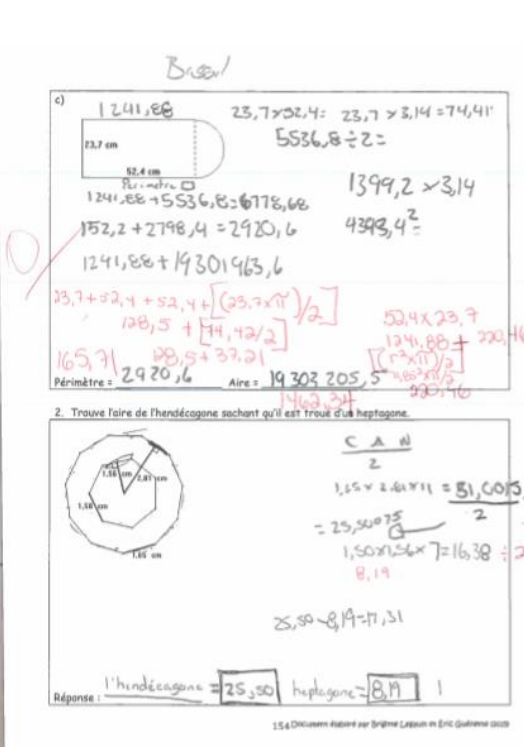 c)
1241,88
23,7 × 52,4 =
23,7 × 3,14 = 74,41
5536,8 ÷ 2 =
23,7 cm
52,4 cm
Perimetre
1399,2 × 3,14
1241,88 + 5536,8 = 6778,68
152,2 + 2798,4 = 2920,6
4393,4² =
1241,88 + 19301963,6
23,7 + 52,4 + 52,4 + [(23,7×π)/2]
128,5 + [74,42/2]
128,5 + 37,21
165,71
52,4 × 23,7
1241,88 + 220,46
[(r²×π)/2]
220,46
Périmètre = 2920,6
Aire = 19 303 205,5
1462,34
2. Trouve l'aire de l'hendécagone sachant qu'il est troué d'un heptagone.
C A N
2
1,56 cm
2,81 cm
1,50 cm
1,65 cm
1,65 × 2,81 × 11 = 51,0015
2
= 25,50075
1,50 × 1,56 × 7 = 16,38 ÷ 2
8,19
25,50 - 8,19 = 17,31
Réponse : l'hendécagone = 25,50 heptagone = 8,19
154 Document élaboré par Brigitte Éric